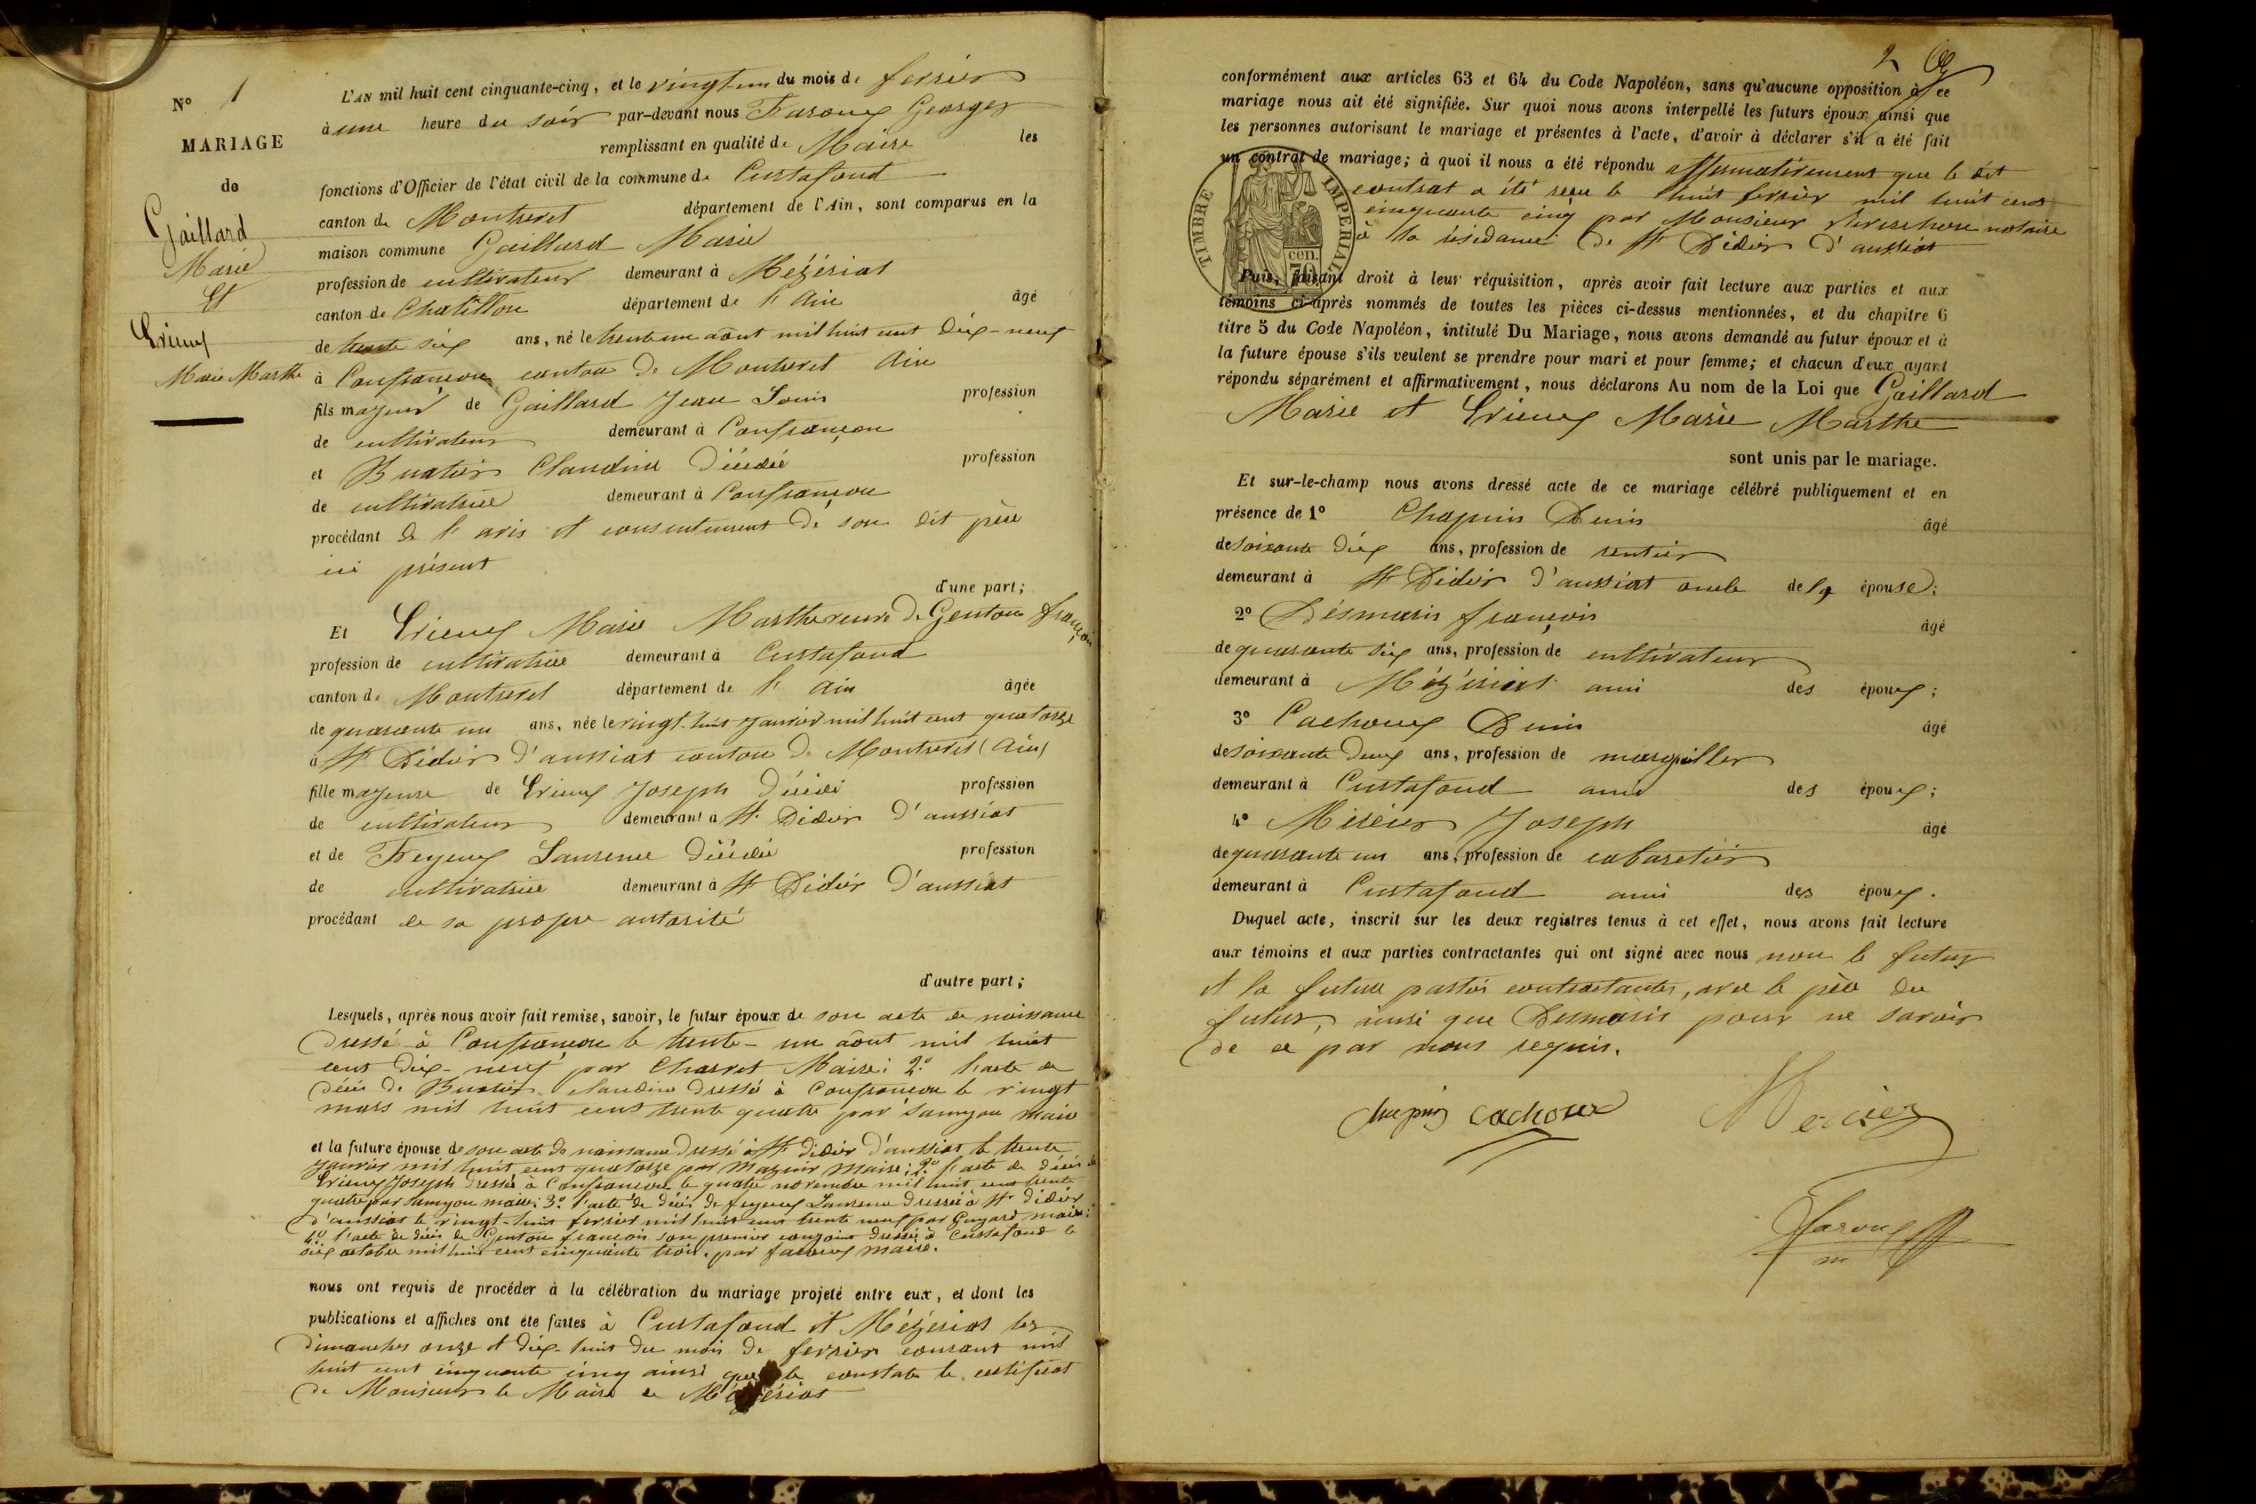 N° 1
MARIAGE
de
Gaillard
Marie
Et
Erieux
Marie Marthe
L'AN mil huit cent cinquante-cinq, et le vingt un du mois de fevrier
à une heure du soir par-devant nous Faroux Georges
remplissant en qualité de Maire les
fonctions d'Officier de l'état civil de la commune de Curtafond
canton de Montrevel département de l'Ain, sont comparus en la
maison commune Gaillard Marie
profession de cultivateur demeurant à Mézériat
canton de Chatillon département de l'Ain âgé
de trente six ans, né le trente un août mil huit cent dix-neuf
à Confrançon canton de Montrevel Ain
fils majeur de Gaillard Jean Louis profession
de cultivateur demeurant à Confrançon
et Buatier Claudine Décédée profession
de cultivatrice demeurant à Confrançon
procédant de l'avis et consentement de son dit père
ici présent
d'une part;
Et Erieux Marie Marthe veuve de Genton françois
profession de cultivatrice demeurant à Curtafond
canton de Montrevel département de l'Ain âgée
de quarante un ans, née le vingt-huit Janvier mil huit cent quatorze
à St Didier d'aussiat canton de Montrevel (Ain)
fille majeure de Erieux Joseph Décédé profession
de cultivateur demeurant à St Didier d'aussiat
et de Feyeux Laurence Décédée profession
de cultivatrice demeurant à St Didier d'aussiat
procédant de sa propre autorité
d'autre part;
Lesquels, après nous avoir fait remise, savoir, le futur époux de son acte de naissance
dressé à Confrançon le trente-un août mil huit
cent dix-neuf par Charvet Maire; 2° l'acte de
décès de Buatier Claudine dressé à Confrançon le vingt
mars mil huit cent trente quatre par Samyon maire
et la future épouse de son acte de naissance dressé à St Didier d'aussiat le trente
janvier mil huit cent quatorze par Mazuir Maire; 2° l'acte de décès de
Erieux Joseph dressé à Confrançon le quatre novembre mil huit cent trente
quatre par Samyon maire; 3° l'acte de décès de feyeux Laurence dressé à St Didier
d'aussiat le vingt-huit fevrier mil huit cent trente neuf par Guyard maire;
4° l'acte de décès de Genton françois son premier conjoint dressé à Curtafond le
six octobre mil huit cent cinquante trois par faroux maire.
nous ont requis de procéder à la célébration du mariage projeté entre eux, et dont les
publications et affiches ont été faites à Curtafond et Mézériat les
dimanches onze et dix huit du mois de fevrier courant mil
huit cent cinquante cinq ainsi que le constate le certificat
de Monsieur le Maire de Mézériat
2
conformément aux articles 63 et 64 du Code Napoléon, sans qu'aucune opposition à ce
mariage nous ait été signifiée. Sur quoi nous avons interpellé les futurs époux ainsi que
les personnes autorisant le mariage et présentes à l'acte, d'avoir à déclarer s'il a été fait
un contrat de mariage; à quoi il nous a été répondu affirmativement que le dit
contrat a été reçu le huit fevrier mil huit cent
cinquante cinq par Monsieur notaire
à la résidance de St Didier d'aussiat
TIMBRE IMPÉRIAL
cen. 70
Puis, faisant droit à leur réquisition, après avoir fait lecture aux parties et aux
témoins ci-après nommés de toutes les pièces ci-dessus mentionnées, et du chapitre 6
titre 5 du Code Napoléon, intitulé Du Mariage, nous avons demandé au futur époux et à
la future épouse s'ils veulent se prendre pour mari et pour femme; et chacun d'eux ayant
répondu séparément et affirmativement, nous déclarons Au nom de la Loi que Gaillard
Marie et Erieux Marie Marthe
sont unis par le mariage.
Et sur-le-champ nous avons dressé acte de ce mariage célébré publiquement et en
présence de 1° Chapuis Denis âgé
de soixante dix ans, profession de rentier
demeurant à St Didier d'aussiat oncle de l'a épouse;
2° Désmaris françois âgé
de quarante six ans, profession de cultivateur
demeurant à Mézériat ami des époux;
3° Cachoux Denis âgé
de soixante deux ans, profession de marguiller
demeurant à Curtafond ami des époux;
4° Mercier Joseph âgé
de quarante un ans, profession de cabaretier
demeurant à Curtafond ami des époux.
Duquel acte, inscrit sur les deux registres tenus à cet effet, nous avons fait lecture
aux témoins et aux parties contractantes qui ont signé avec nous non le futur
et la future parties contractantes, avec le père du
futur, ainsi que Desmaris pour ne savoir
de ce par nous requis.
Chapuis Cachoux Mercier
Faroux
m